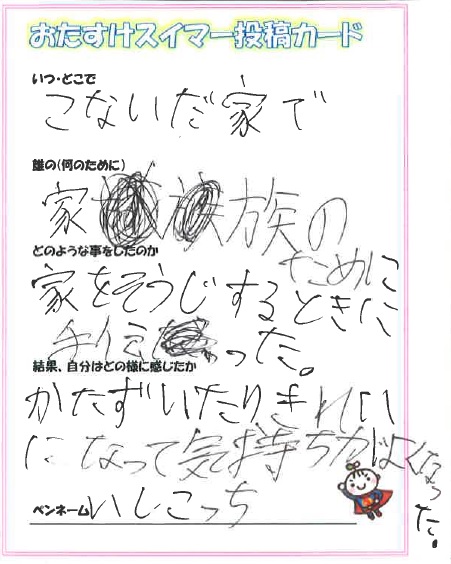 おたすけスイマー投稿カード
いつ・どこで
こないだ家で
誰の(何のために)
家族の
ために
どのような事をしたのか
家をそうじするときに
手伝った。
結果、自分はどの様に感じたか
かたずいたりきれい
になって気持ちがよくなった。
ペンネーム いしこっち